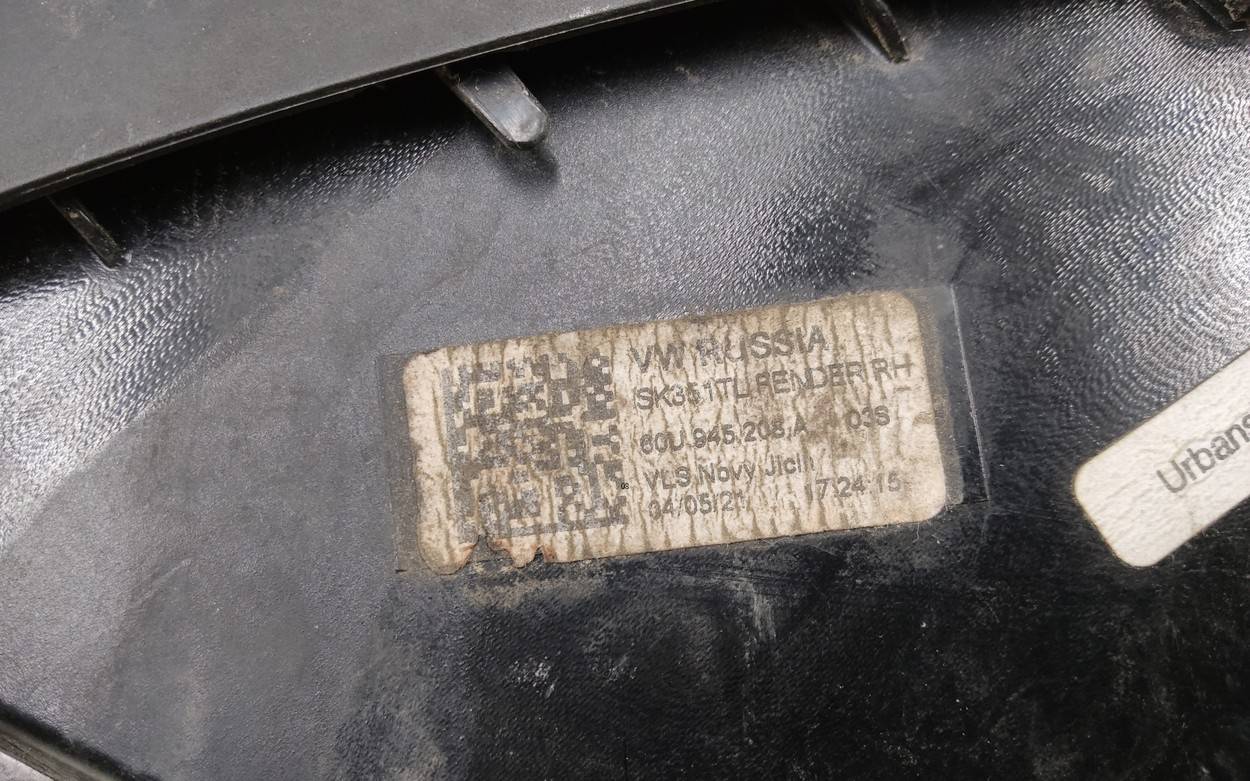 VW RUSSIA
SK351TL RENDER RH
60U.945.208.A 03S
VLS Novy Jicin
04/05/21 17:24:15
Urbans